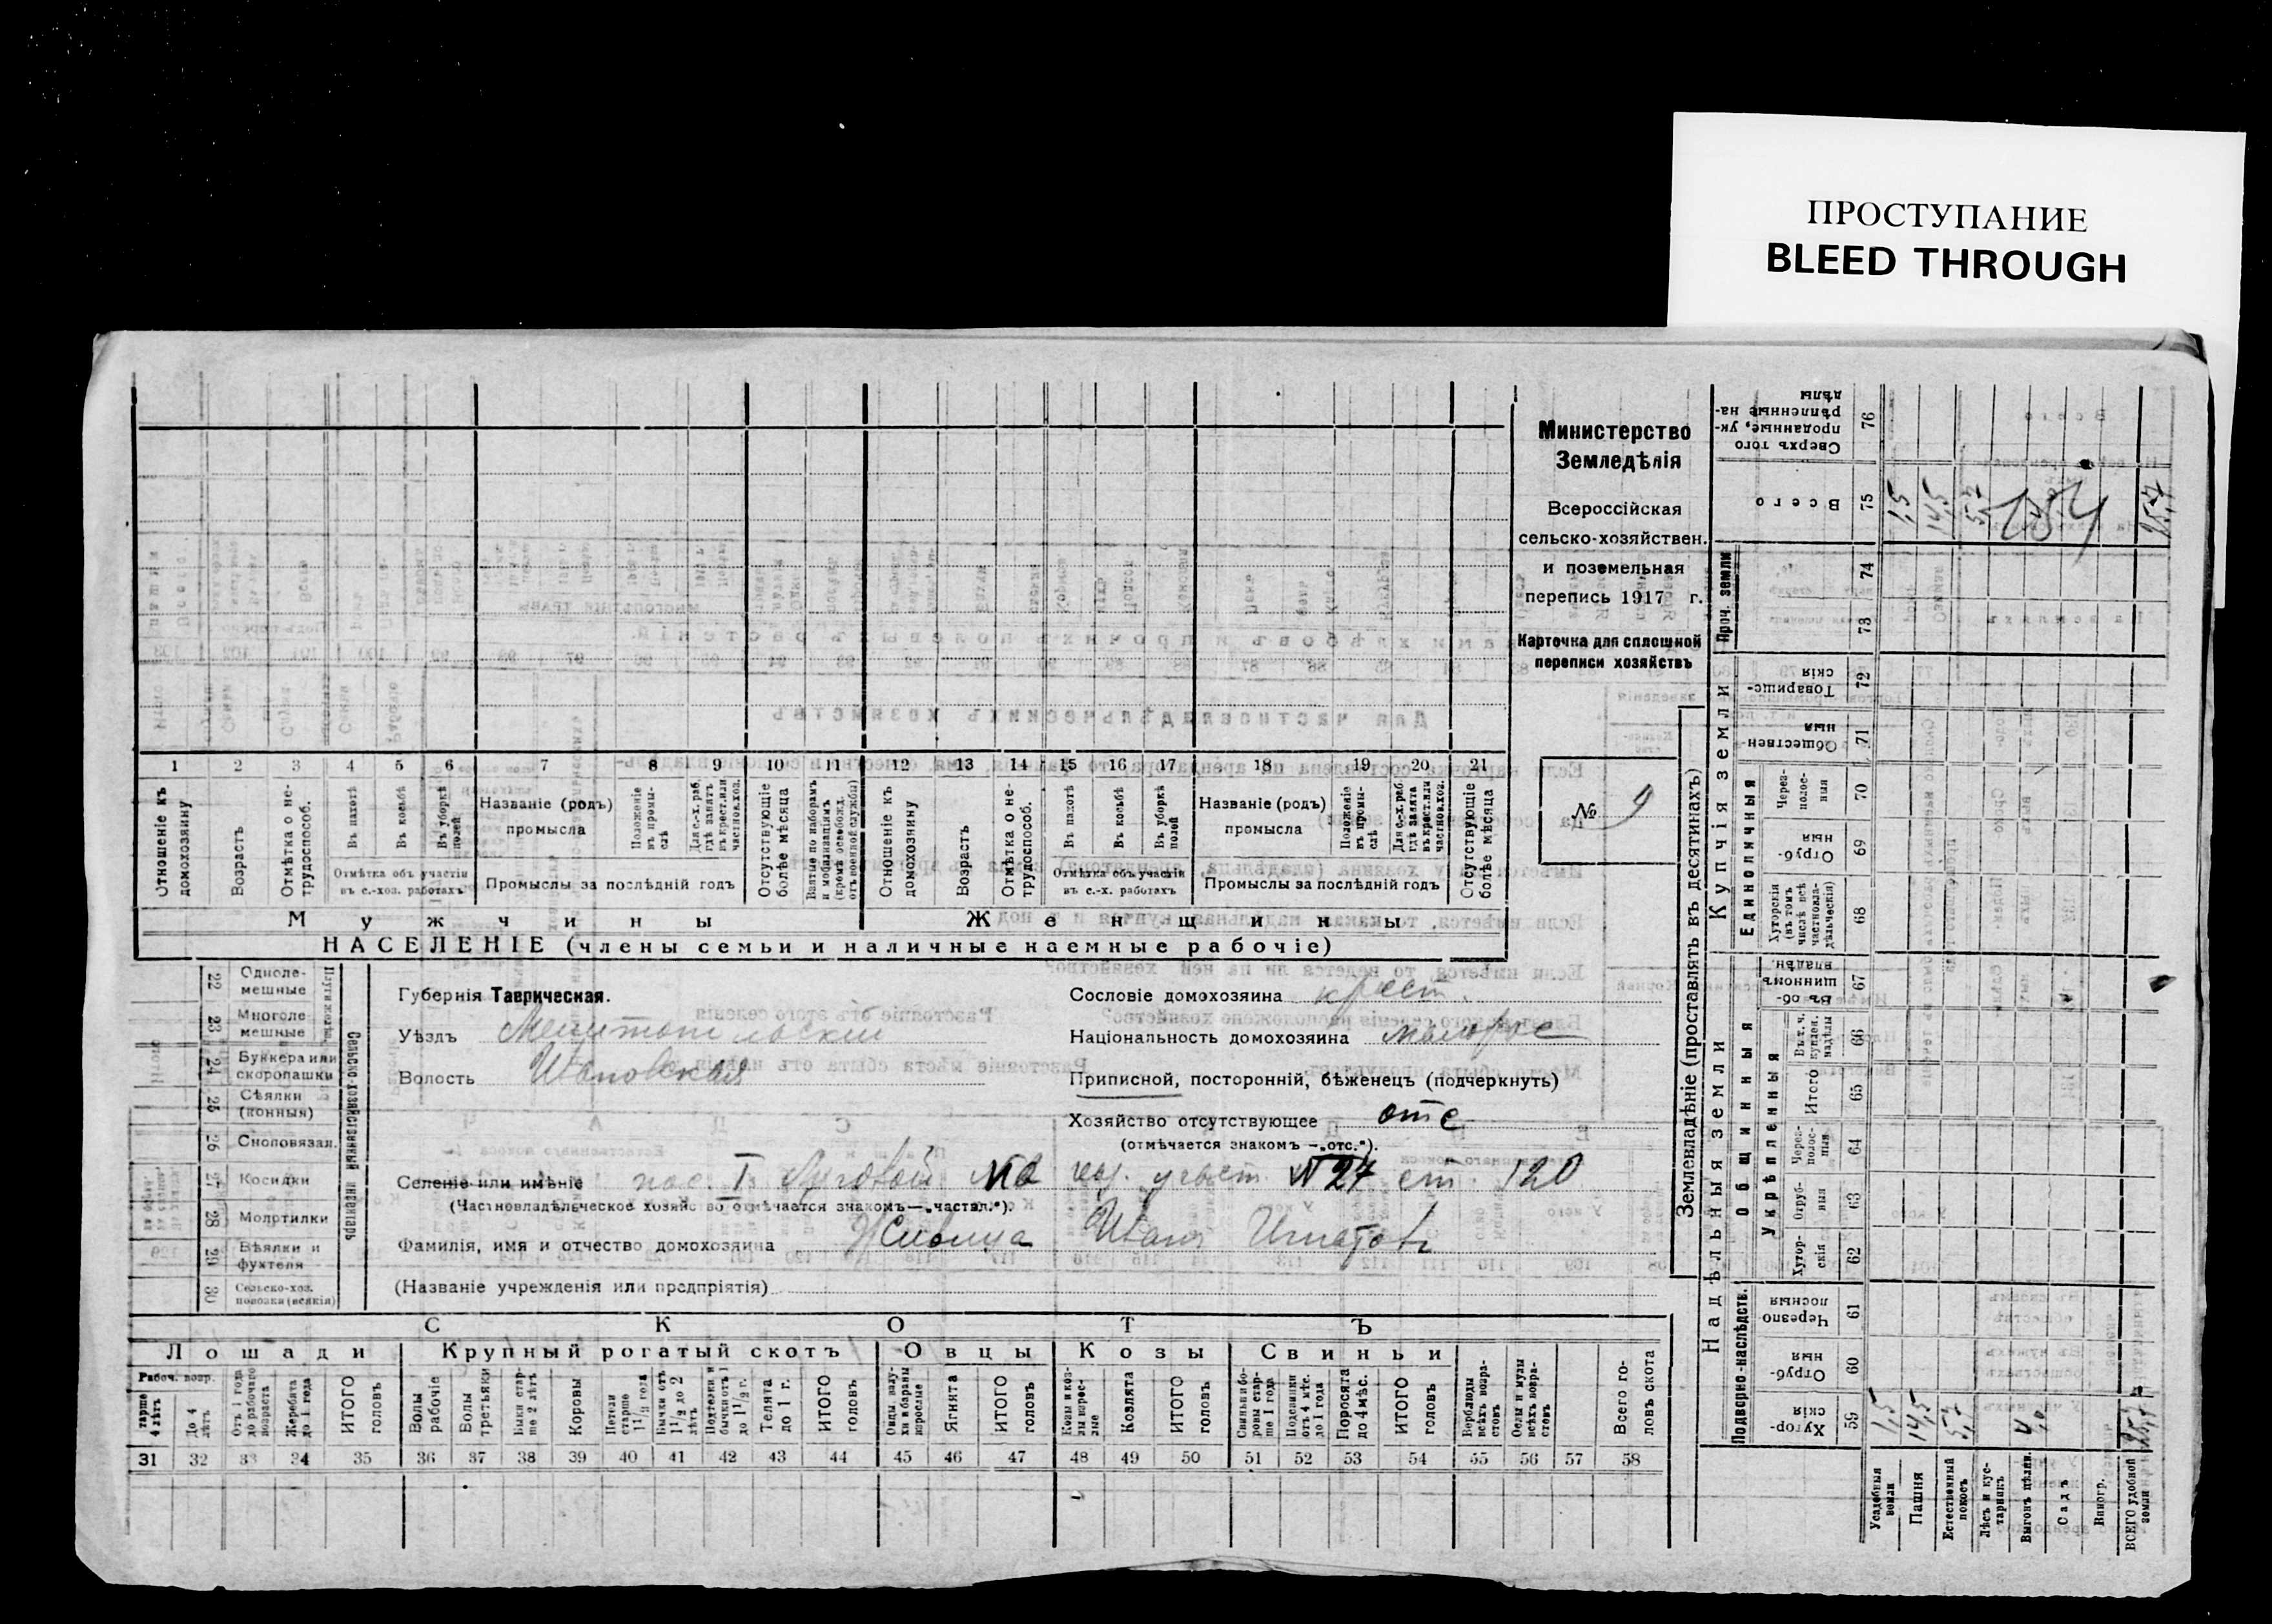 ПРОСТУПАНИЕ
BLEED THROUGH
Министерство
Земледѣлія
Всероссійская
сельско-хозяйствен.
и поземельная
перепись 1917 г.
Карточка для сплошной
переписи хозяйствъ
№ 9
1 2 3 4 5 6 7 8 9 10 11 12 13 14 15 16 17 18 19 20 21
Отношеніе къ домохозяину
Возрастъ
Отмѣтка о не-трудоспособ.
Въ пахотѣ
Въ косьбѣ
Въ уборкѣ полей
Отмѣтка объ участіи
въ с.-хоз. работахъ
Названіе (родъ)
промысла
Положеніе въ промы-слѣ
Для с.-х. раб. гдѣ занятъ въ крест. или частнов. хоз.
Промыслы за послѣдній годъ
Отсутствующіе болѣе мѣсяца
Взятые по наборамъ и мобилизаціямъ (кромѣ освобожд. отъ военной службы)
Отношеніе къ домохозяину
Возрастъ
Отмѣтка о не-трудоспособ.
Въ пахотѣ
Въ косьбѣ
Въ уборкѣ полей
Отмѣтка объ участіи
въ с.-х. работахъ
Названіе (родъ)
промысла
Положеніе въ промы-слѣ
Для с.-х. раб. гдѣ занята въ крест. или частнов. хоз.
Промыслы за послѣдній годъ
Отсутствующіе болѣе мѣсяца
Мужчины Женщины
НАСЕЛЕНІЕ (члены семьи и наличные наемные рабочіе)
22 Однолемешные
23 Многолемешные
24 Буккера или скоропашки
25 Сѣялки (конныя)
26 Сноповязал.
27 Косилки
28 Молотилки
29 Вѣялки и фухтеля
30 Сельско-хоз. повозки (всякія)
Сельско-хозяйственный инвентарь
Губернія Таврическая.
Уѣздъ Мелитопольскій
Волость
Сословіе домохозяина крест.
Національность домохозяина малорос
Приписной, посторонній, бѣженецъ (подчеркнуть)
Хозяйство отсутствующее отс
(отмѣчается знакомъ — „отс.").
Селеніе или имѣніе пос. I Луговой № 27 ст. 120
(Частновладѣльческое хозяйство отмѣчается знакомъ—„частвл.").
Фамилія, имя и отчество домохозяина Иванъ Игнатовъ
(Названіе учрежденія или предпріятія)
СКОТЪ
Лошади Крупный рогатый скотъ Овцы Козы Свиньи
Рабоч. возр.
старше 4 лѣтъ
До 4 лѣтъ
Отъ 1 года до рабочаго возраста
Жеребята до 1 года
ИТОГО головъ
Волы рабочіе
Волы третьяки
Быки стар-ше 2 лѣтъ
Коровы
Нетели старше 1 1/2 года
Бычки отъ 1 1/2 до 2 лѣтъ
Подтелки и бычки отъ 1 до 1 1/2 г.
Телята до 1 г.
ИТОГО головъ
Овцы, валу-хи и бараны взрослые
Ягнята
ИТОГО головъ
Козы и коз-лы взрос-лые
Козлята
ИТОГО головъ
Свиньи и бо-ровы стар-ше 1 года
Подсвинки отъ 4 мѣс. до 1 года
Поросята до 4 мѣс.
ИТОГО головъ
Верблюды всѣхъ возра-стовъ
Ослы и мулы всѣхъ возра-стовъ
Всего го-ловъ скота
31 32 33 34 35 36 37 38 39 40 41 42 43 44 45 46 47 48 49 50 51 52 53 54 55 56 57 58
Землевладѣніе (проставлять въ десятинахъ)
Надѣльныя земли
Купчія земли
Проч. земли
Подворно-наслѣдств.
Общинныя
Укрѣпленныя
Единоличныя
Хутор-скія 59
Отруб-ныя 60
Черезпо-лосныя 61
Хутор-скія 62
Отруб-ныя 63
Через-полос-ныя 64
Итого 65
Въ т. ч. купчен. надѣлы 66
Въ об-щинномъ владѣн. 67
Хуторскія (въ томъ числѣ всѣ частновла-дѣльческія) 68
Отруб-ныя 69
Через-полос-ныя 70
Обществен-ныя 71
Товарище-скія 72
73
74
Всего 75
Сверхъ того проданные, ук-рѣпленные на-дѣлы 76
Усадебныя земли 1,5 1,5
Пашня 14,5 14,5
Естественный покосъ 5,7 5,7
Лѣсъ и кус-тарникъ
Выгонъ цѣлин.
Садъ
Виногр.
ВСЕГО удобной земли 25,7 25,7